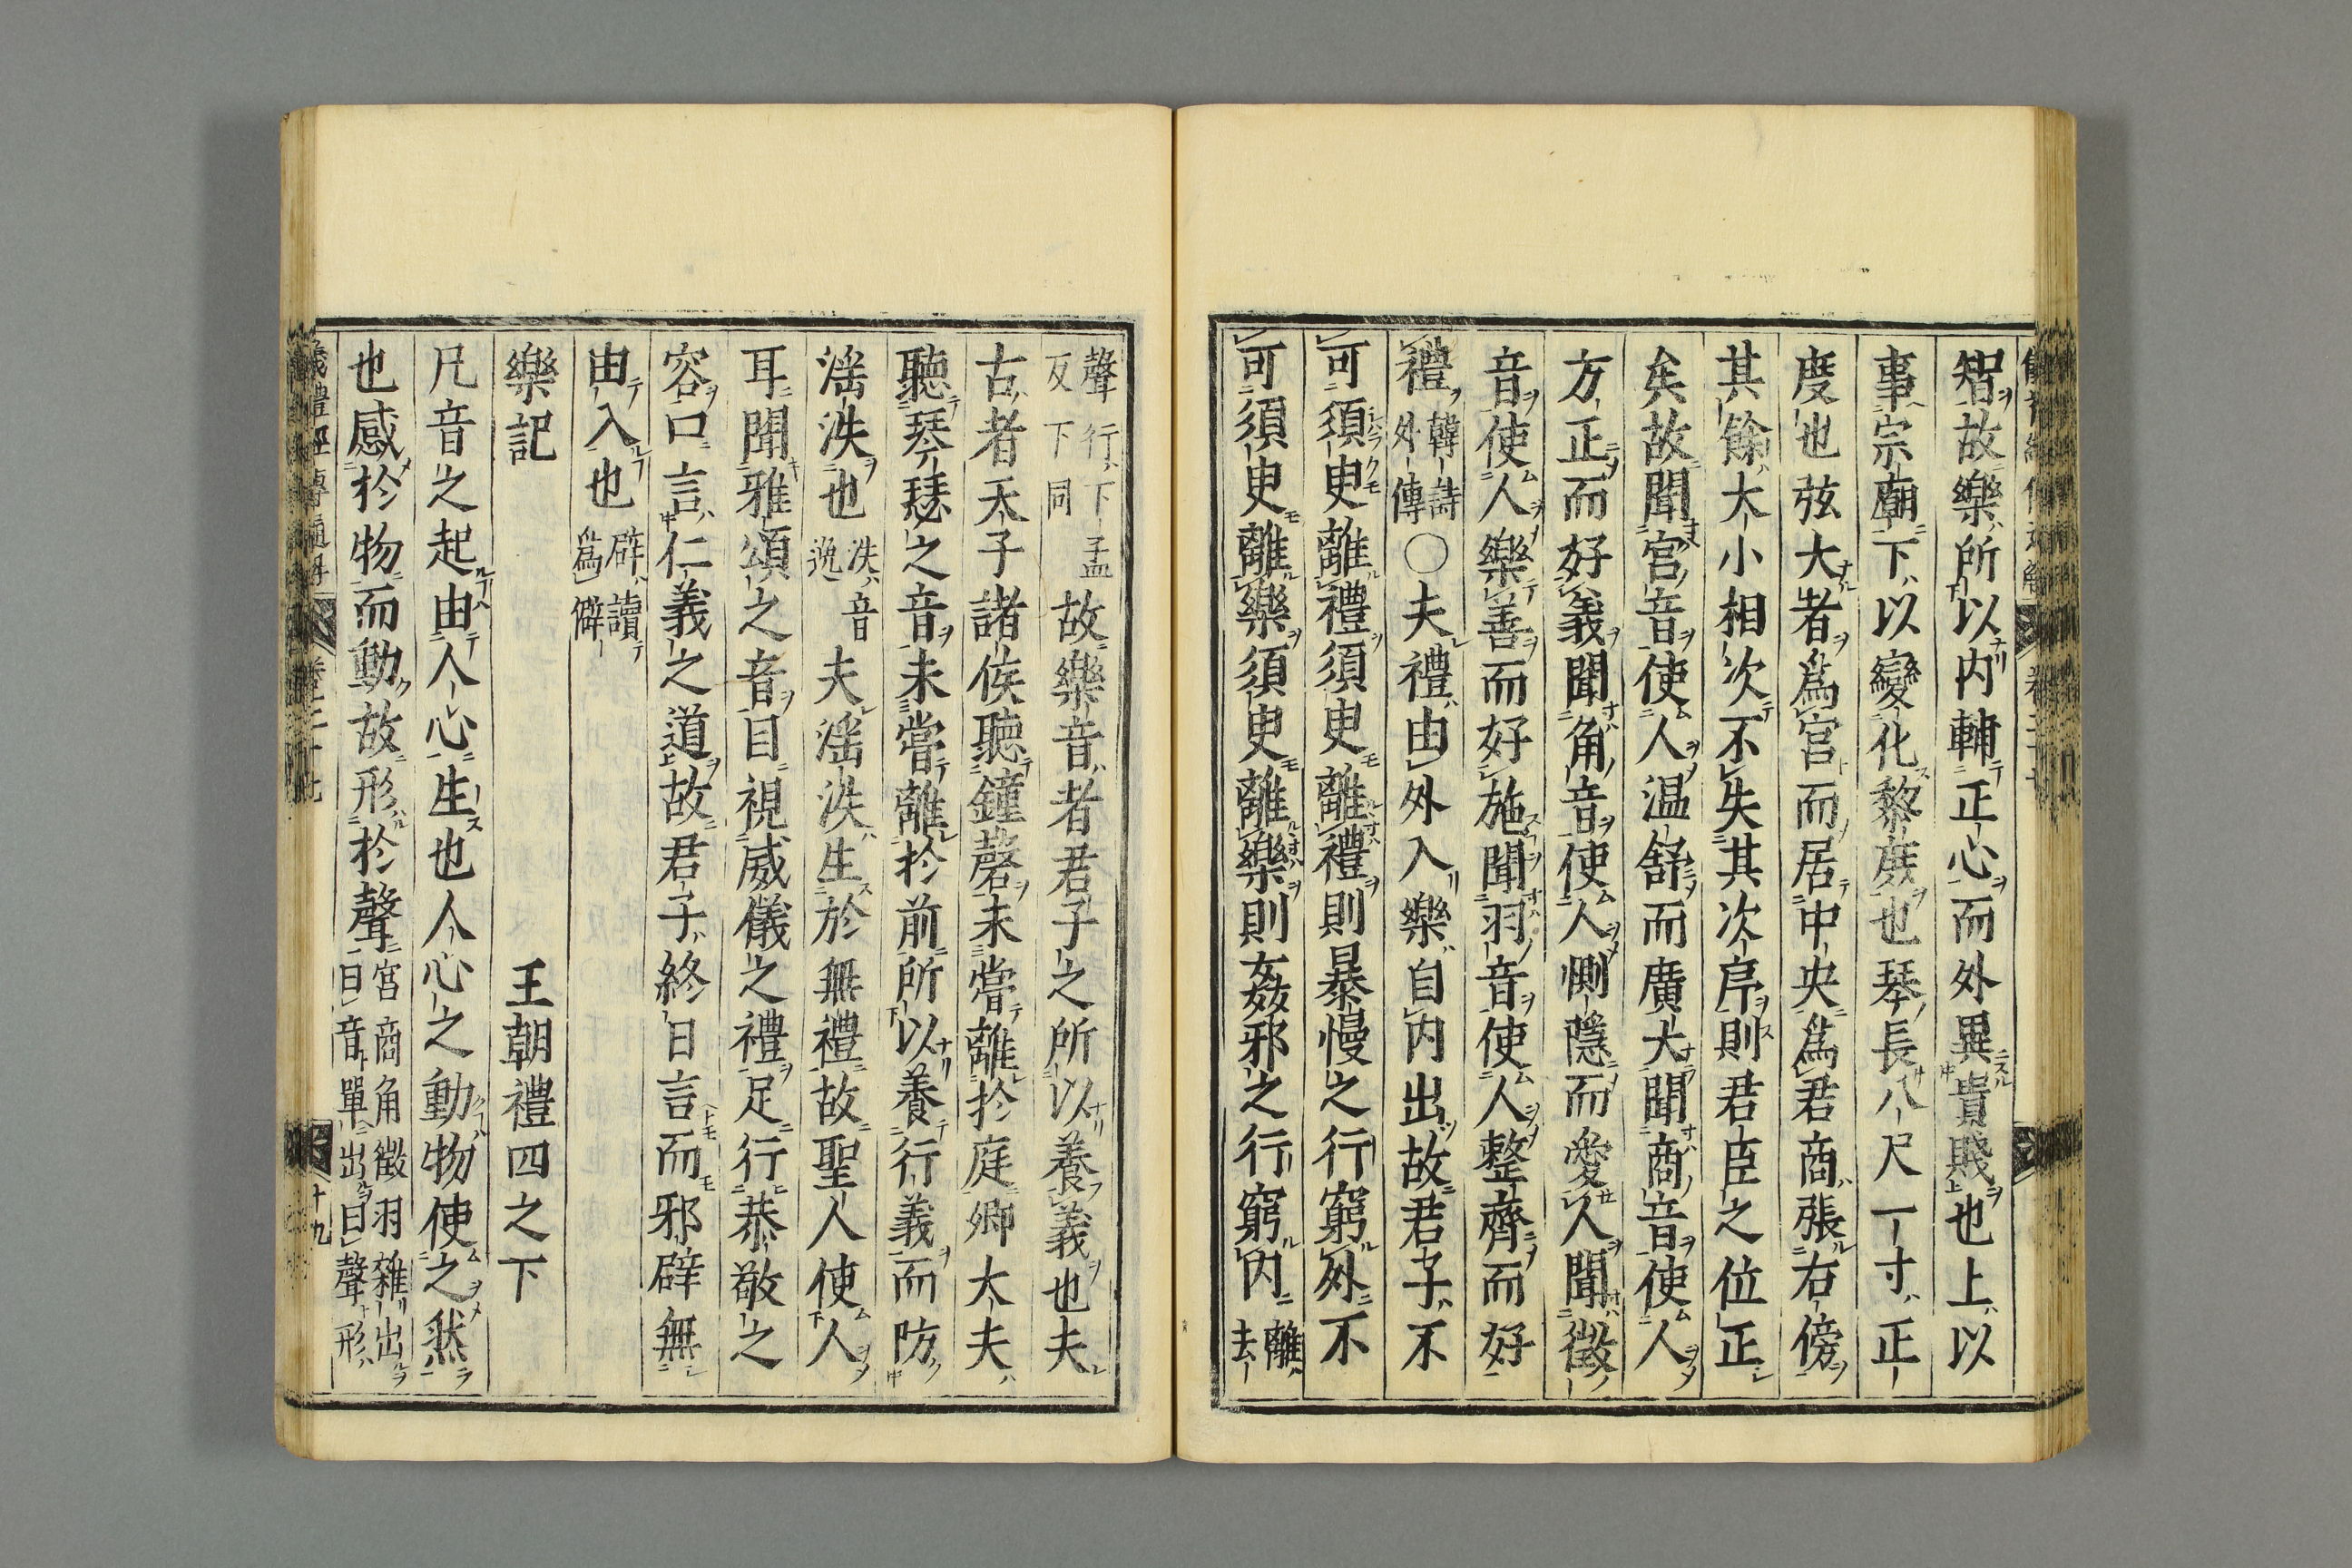 智故樂所以内輔正心而外異貴賤也上以
事宗廟下以變化黎庶也琴長八尺一寸正
度也弦大者爲宮而居中央爲君商張右傍
其餘大小相次不失其次序則君臣之位正
矣故聞宮音使人温舒而廣大聞商音使人
方正而好義聞角音使人惻隱而愛人聞徵
音使人樂善而好施聞羽音使人整齊而好
禮韓詩外傳○夫禮由外入樂自内出故君子不
可須臾離禮須臾離禮則暴慢之行窮外不
可須臾離樂須臾離樂則姦邪之行窮内離去
聲行下孟反下同故樂音者君子之所以養義也夫
古者天子諸侯聽鐘磬未嘗離於庭卿大夫
聽琴瑟之音未嘗離於前所以養行義而防
淫泆也泆音逸夫淫泆生於無禮故聖人使人
耳聞雅頌之音目視威儀之禮足行恭敬之
容口言仁義之道故君子終日言而邪辟無
由入也辟讀爲僻
樂記　王朝禮四之下
凡音之起由人心生也人心之動物使之然
也感於物而動故形於聲宮商角徵羽雜出曰音單出曰聲形
儀禮經傳通解 卷二十七 十九